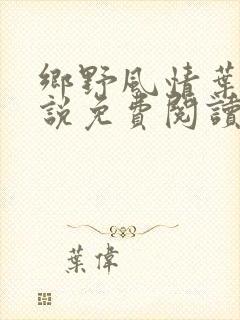 鄉野風情葉
說免費閱讀
葉偉